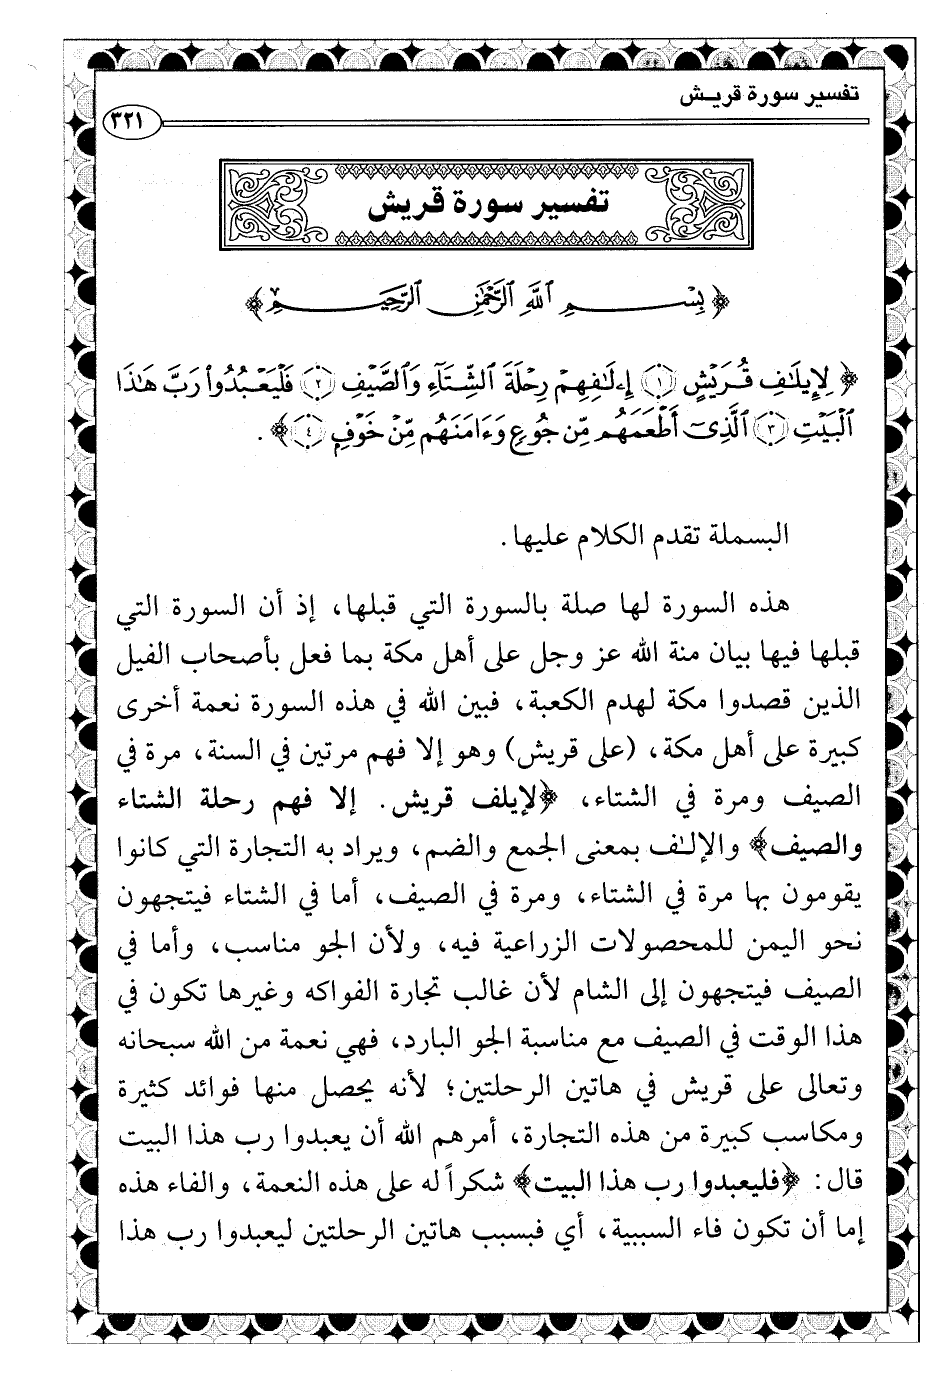 تفسير سورة قريش
٣٢١
تفسير سورة قريش
﴿بِسْمِ ٱللَّهِ ٱلرَّحْمَٰنِ ٱلرَّحِيمِ﴾
﴿لِإِيلَٰفِ قُرَيْشٍ ١ إِۦلَٰفِهِمْ رِحْلَةَ ٱلشِّتَآءِ وَٱلصَّيْفِ ٢ فَلْيَعْبُدُوا۟ رَبَّ هَٰذَا
ٱلْبَيْتِ ٣ ٱلَّذِىٓ أَطْعَمَهُم مِّن جُوعٍ وَءَامَنَهُم مِّنْ خَوْفٍۭ ٤﴾.
البسملة تقدم الكلام عليها.
هذه السورة لها صلة بالسورة التي قبلها، إذ أن السورة التي
قبلها فيها بيان منة الله عز وجل على أهل مكة بما فعل بأصحاب الفيل
الذين قصدوا مكة لهدم الكعبة، فبين الله في هذه السورة نعمة أخرى
كبيرة على أهل مكة، (على قريش) وهو إلا فهم مرتين في السنة، مرة في
الصيف ومرة في الشتاء، ﴿لإيلف قريش. إلا فهم رحلة الشتاء
والصيف﴾ والإلٰف بمعنى الجمع والضم، ويراد به التجارة التي كانوا
يقومون بها مرة في الشتاء، ومرة في الصيف، أما في الشتاء فيتجهون
نحو اليمن للمحصولات الزراعية فيه، ولأن الجو مناسب، وأما في
الصيف فيتجهون إلى الشام لأن غالب تجارة الفواكه وغيرها تكون في
هذا الوقت في الصيف مع مناسبة الجو البارد، فهي نعمة من الله سبحانه
وتعالى على قريش في هاتين الرحلتين؛ لأنه يحصل منها فوائد كثيرة
ومكاسب كبيرة من هذه التجارة، أمرهم الله أن يعبدوا رب هذا البيت
قال: ﴿فليعبدوا رب هذا البيت﴾ شكراً له على هذه النعمة، والفاء هذه
إما أن تكون فاء السببية، أي فبسبب هاتين الرحلتين ليعبدوا رب هذا